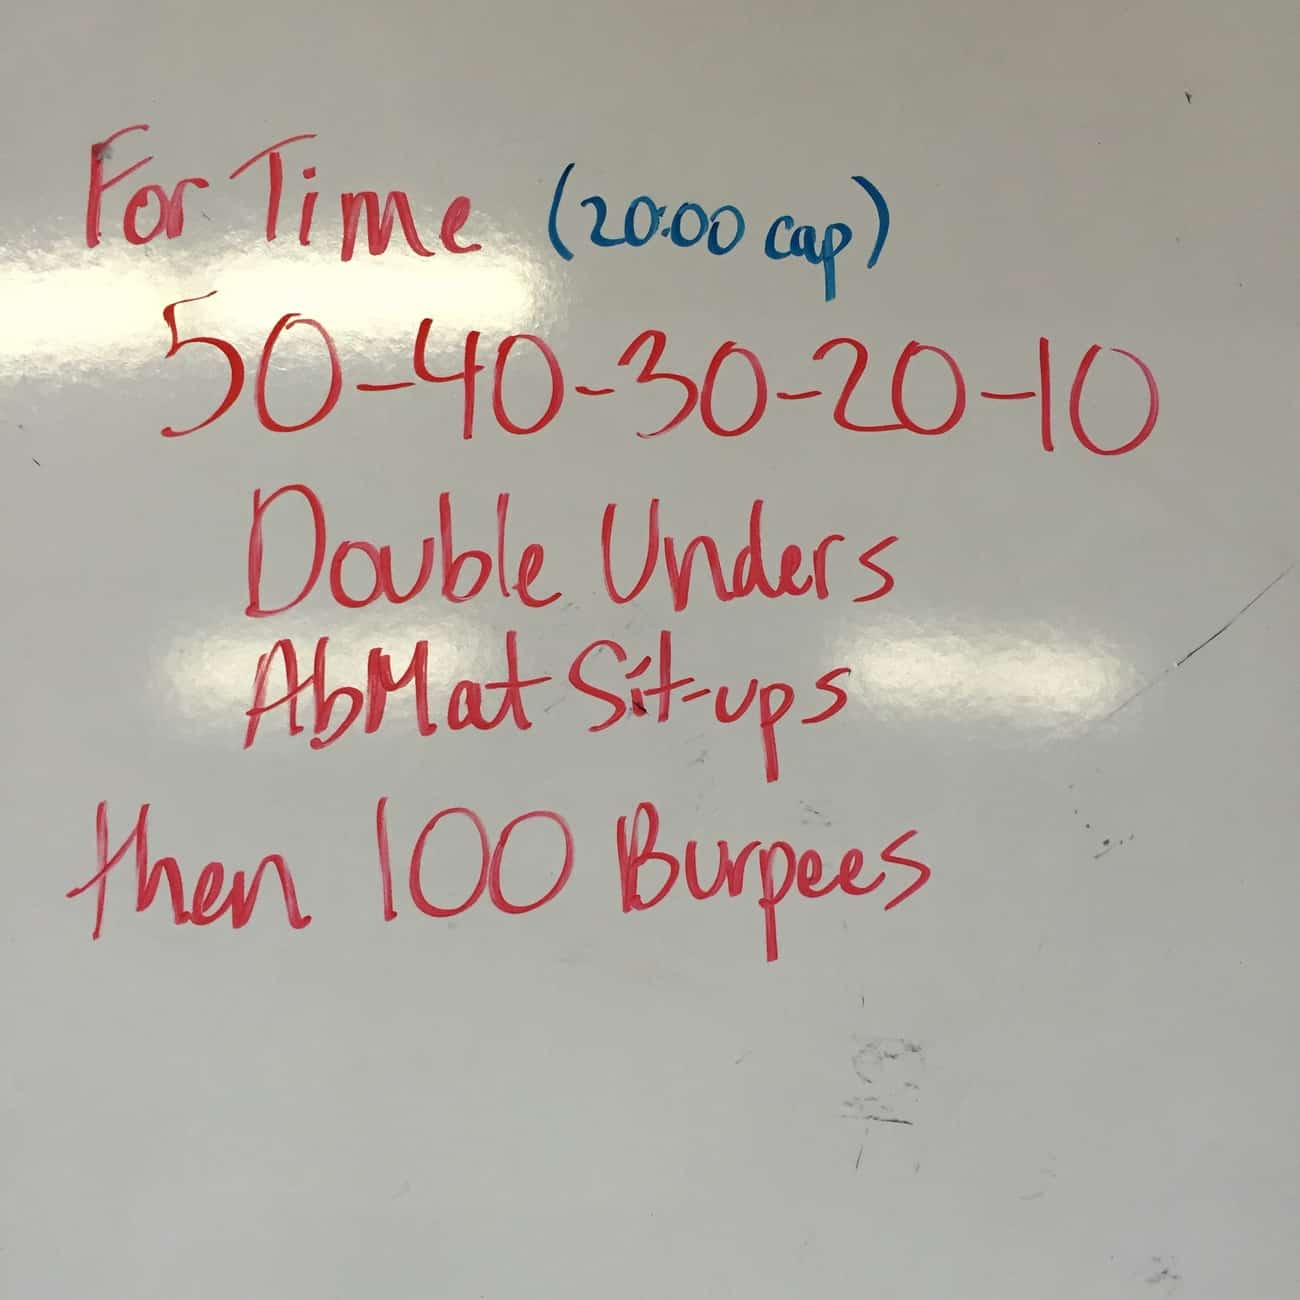 For Time (20:00 cap)
50-40-30-20-10
Double Unders
AbMat Sit-ups
then 100 Burpees